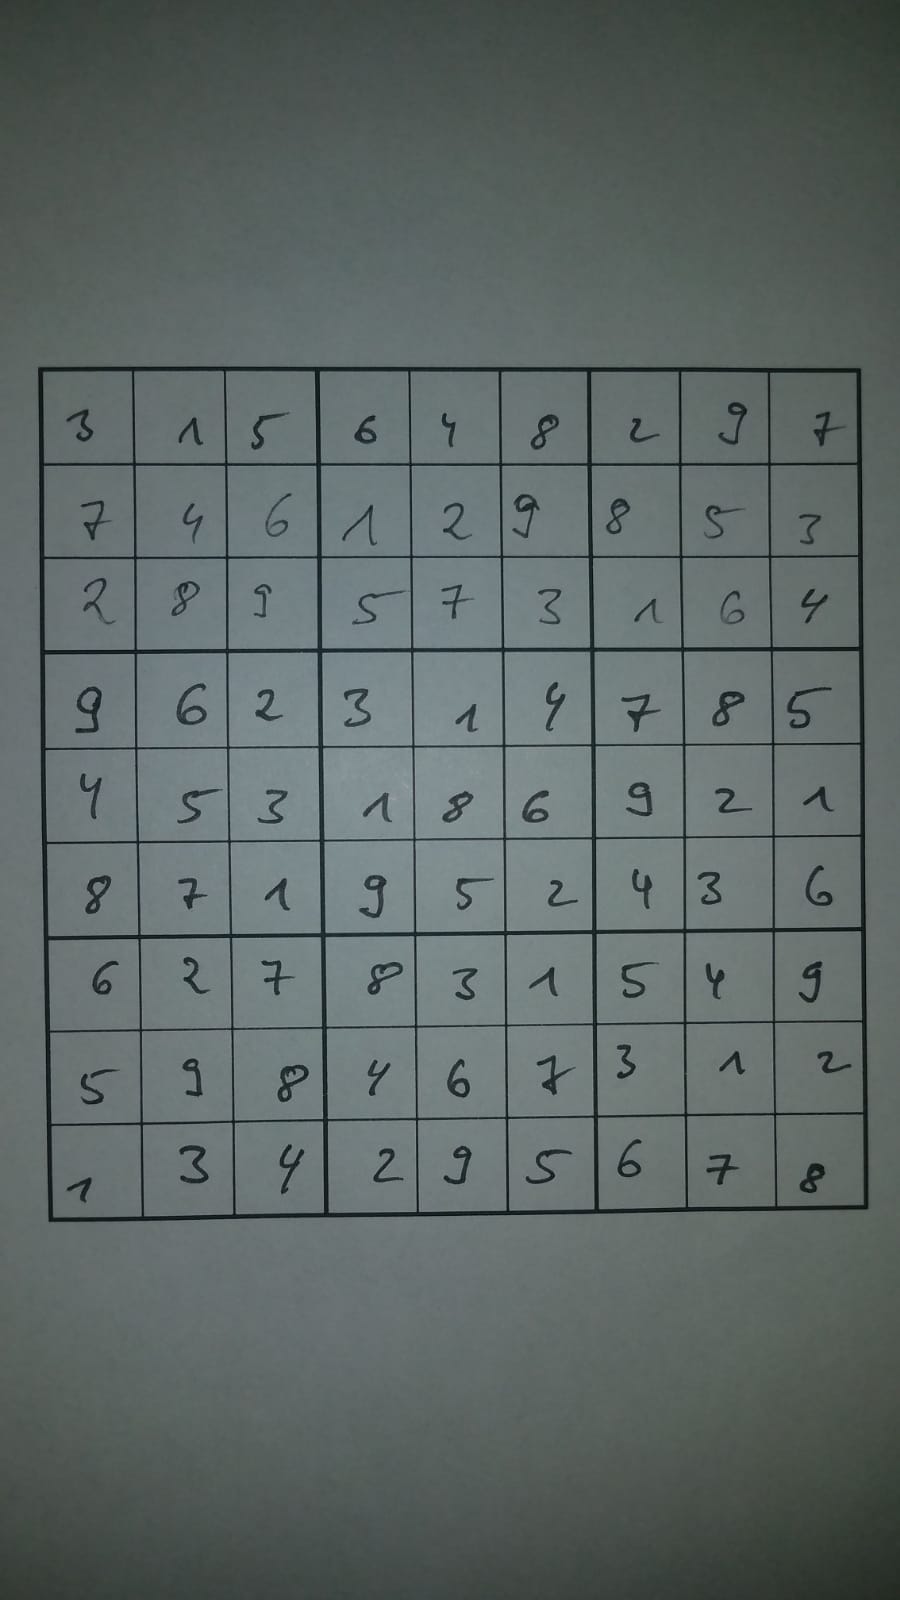 3 1 5 6 4 8 2 9 7
7 4 6 1 2 9 8 5 3
2 8 9 5 7 3 1 6 4
9 6 2 3 1 4 7 8 5
4 5 3 1 8 6 9 2 1
8 7 1 9 5 2 4 3 6
6 2 7 8 3 1 5 4 9
5 9 8 4 6 7 3 1 2
1 3 4 2 9 5 6 7 8